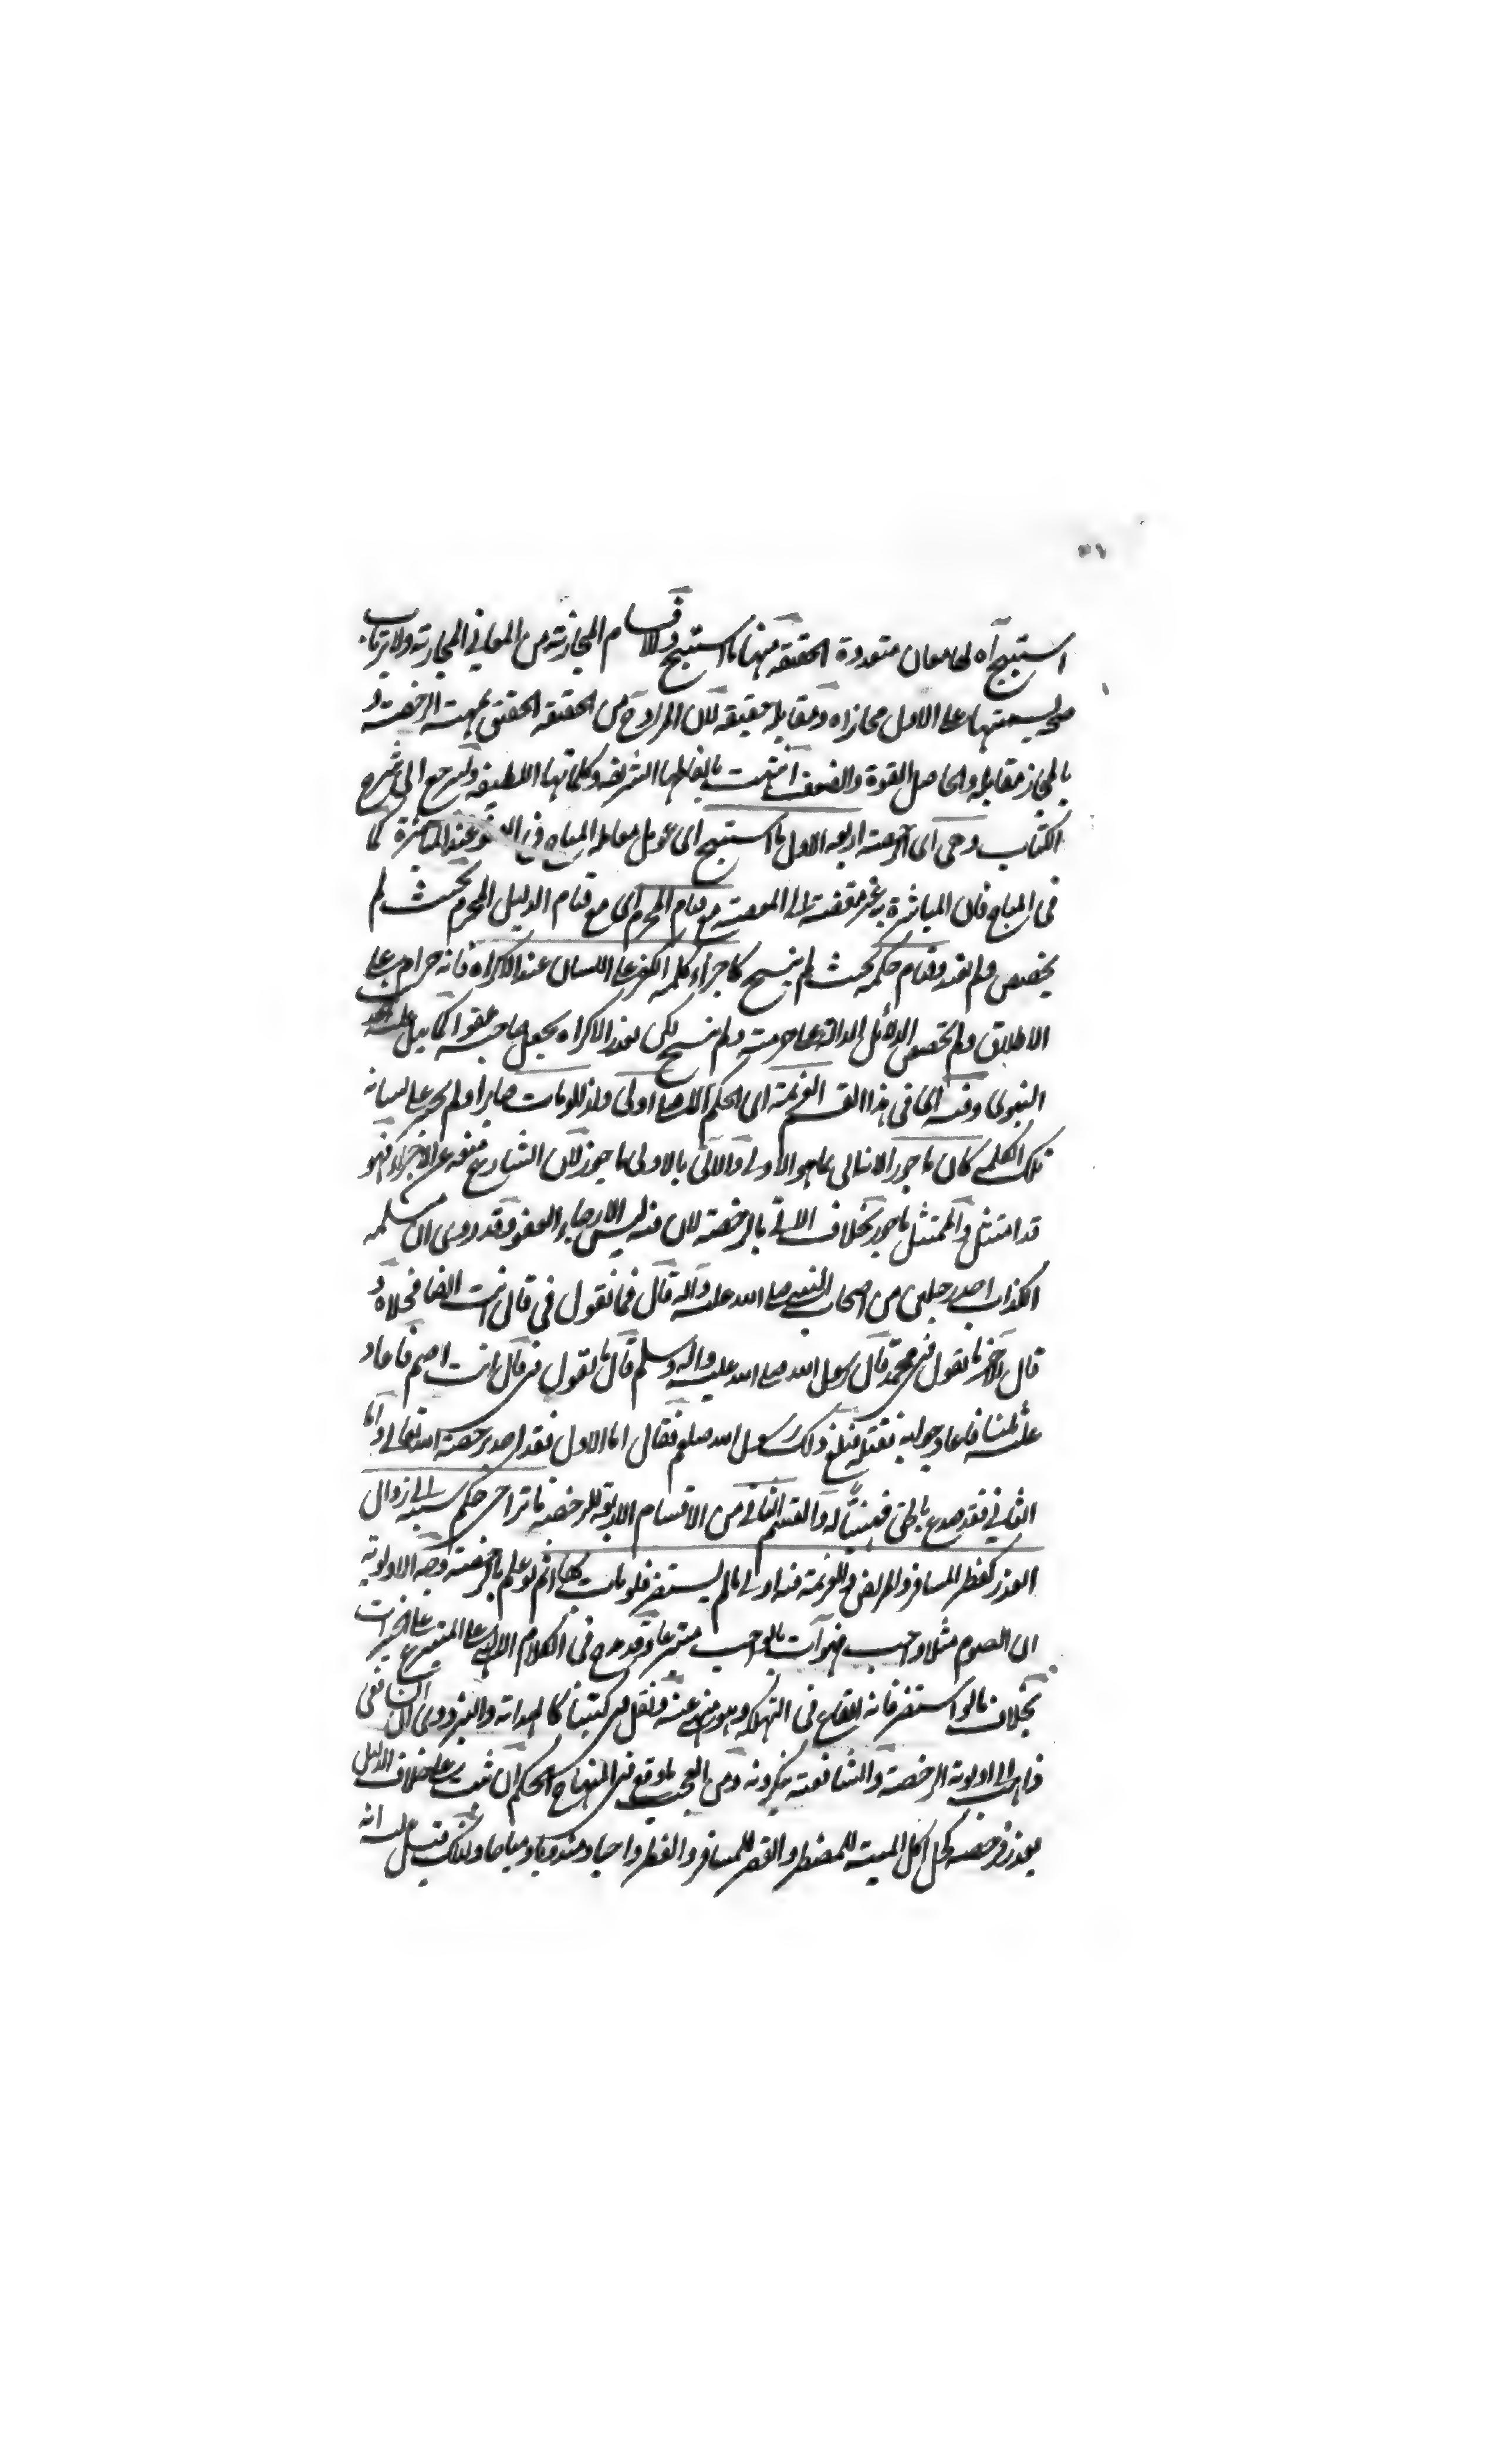 استبيح آه لها معان متعددة الحقيقة منها ما استبيح والاقسام المجازية من المعاني المجازية ولا يرتاب
صح تسميتها على الاول مجازا ومقابله حقيقة لان المراد ح من الحقيقة الحقيق بجهة الرخصة و
بالمجاز مقابله والحاصل القوة والضعف انتهت بالفاظها الشريفة وكلماتها اللطيفة ولنرجع الى شرح
الكتاب وهي اى الرخصة اربعة الاول ما استبيح اى عومل معاملة المباح في العفو عند المباشرة كما
في المباح فان المباشرة به غير مفضية الى المعصية مع قيام المحرم اى مع قيام الدليل المحرم بحيث لم
يخصص ولم يقيد وقيام حكمه بحيث لم ينسخ كاجراء كلمة الكفر على اللسان عند الاكراه فانه حرام على
الاطلاق ولم تخصص الدلائل الدالة على حرمته ولم ينسخ لكن بعذر الاكراه يجعل صاحبه عفوا كما يدل عليه
النبوى وفيه اى في هذا القسم العزيمة اى الحكم الاصلي اولى ولذا لو مات صابرا ولم يجر على لسانه
تلك الكلمة كان ماجورا لاتيانه بما هو الاولى والآتي بالاولى ماجور لان الشارع منعه عن الاجراء فهو
قد امتثل والممتثل ماجور بخلاف الآتي بالرخصة لان فيه ليس الا رجاء العفو وقد روى ان مسيلمة
الكذاب اخذ رجلين من اصحاب النبي صلى الله عليه وآله قال فما تقول في قال انت ايضا فخلاه و
قال للآخر ما تقول في محمد قال رسول الله صلى الله عليه وآله وسلم قال ما تقول في قال انت اصم فاعاد
عليه ثلثا فاعاد جوابه فقتله فبلغ ذلك رسول الله صلعم فقال اما الاول فقد اخذ برخصة الله تعالى واما
الثاني فقد صدع بالحق فهنيئا له والقسم الثاني من الاقسام الاربعة للرخصة ما تراخى حكم سببه الى زوال
العذر كفطر المسافر والمريض والعزيمة فيه اولى ما لم يستضر فلو مات بها اثم لو علم بالرخصة وجه الاولوية
ان الصوم مثلا واجب فهو آت بالواجب متبرعا وقد مدح في الكلام الالهي على المتبرع على الخيرات
بخلاف ما لو استضر فانه القاء في التهلكة وهو منهي عنه ونقل في كتبنا كالهداية والبزدوى ان الشافعي
ذاهب الى اولوية الرخصة والشافعية ينكرونه ومن العجب ما وقع في المنهاج الحكم ان ثبت على خلاف الدليل
بعذر فرخصة كحل اكل الميتة للمضطر والقصر للمسافر والفطر واجبا ومندوبا ومباحا ولذلك قيل عليه انه